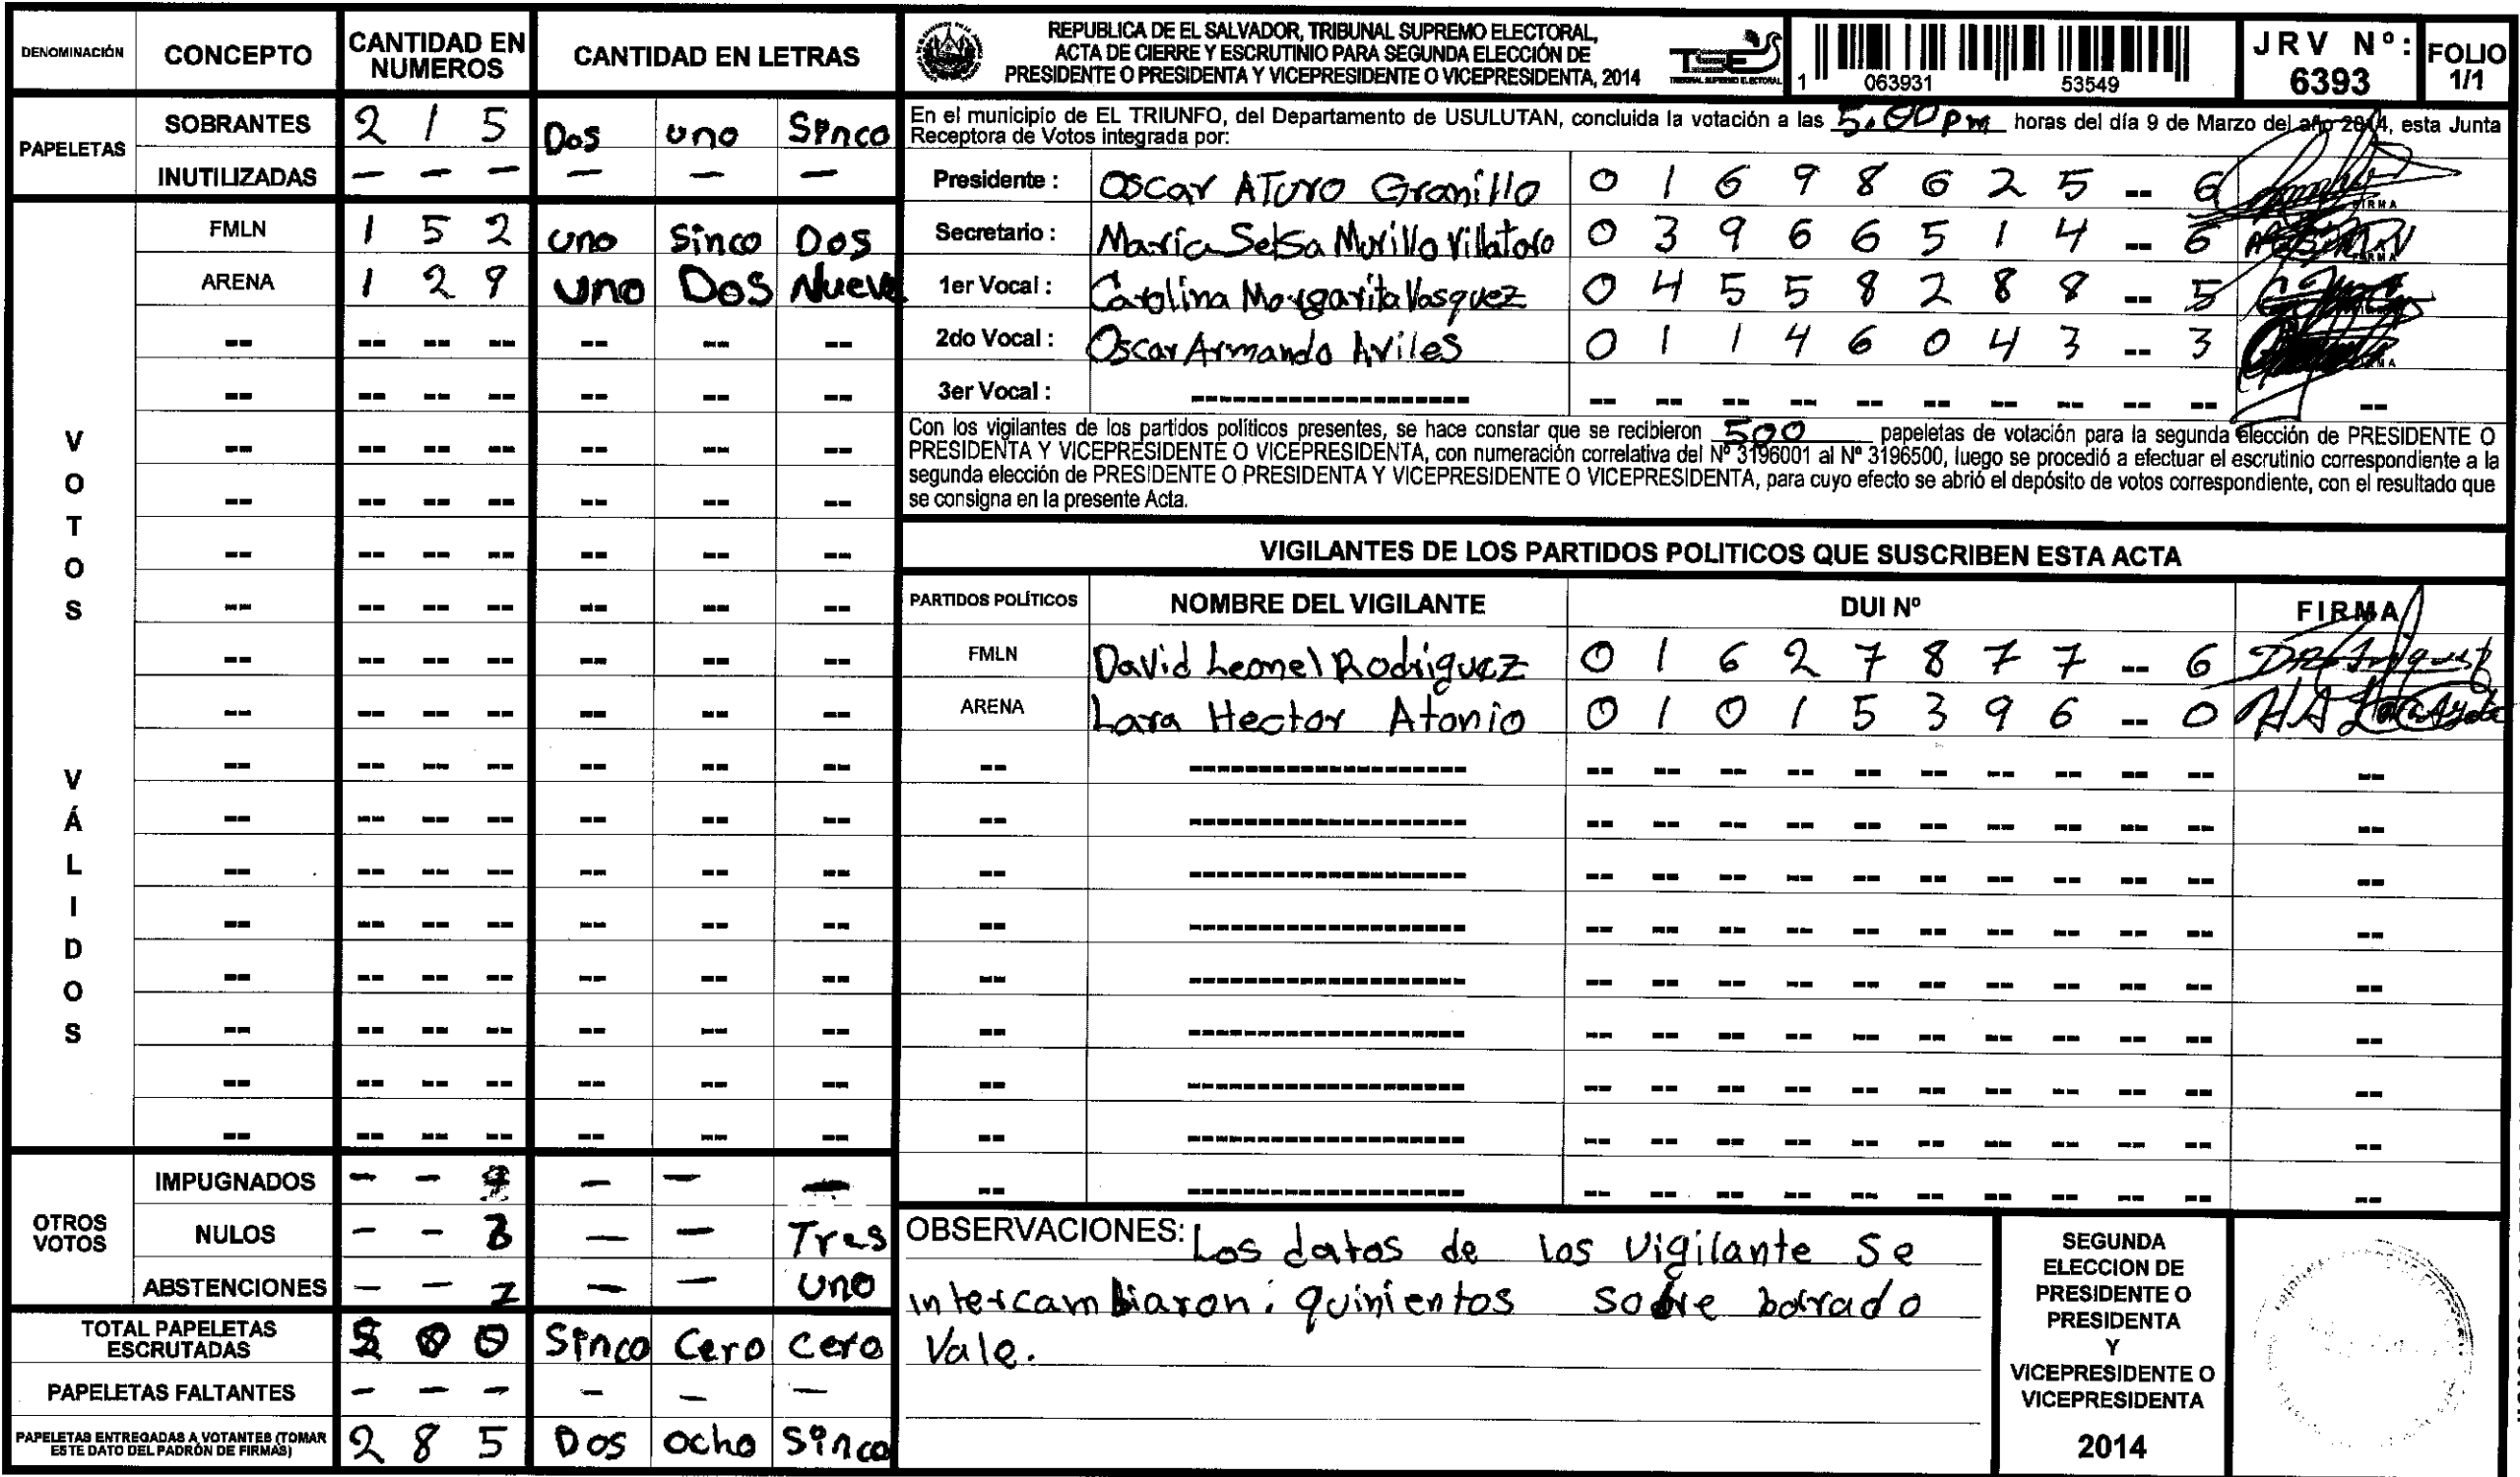 DENOMINACIÓN CONCEPTO CANTIDAD EN NUMEROS CANTIDAD EN LETRAS
PAPELETAS
SOBRANTES 2 1 5 Dos uno Sinco
INUTILIZADAS — — — — — —
VOTOS VÁLIDOS
FMLN 1 5 2 uno Sinco Dos
ARENA 1 2 9 uno Dos Nueve
OTROS VOTOS
IMPUGNADOS — — — — —
NULOS — — 3 — — Tres
ABSTENCIONES — — — — uno
TOTAL PAPELETAS ESCRUTADAS 5 0 0 Sinco Cero cero
PAPELETAS FALTANTES — — — — — —
PAPELETAS ENTREGADAS A VOTANTES (TOMAR ESTE DATO DEL PADRÓN DE FIRMAS) 2 8 5 Dos ocho Sinco
REPUBLICA DE EL SALVADOR, TRIBUNAL SUPREMO ELECTORAL,
ACTA DE CIERRE Y ESCRUTINIO PARA SEGUNDA ELECCIÓN DE
PRESIDENTE O PRESIDENTA Y VICEPRESIDENTE O VICEPRESIDENTA, 2014
TSE
TRIBUNAL SUPREMO ELECTORAL
1 063931 53549
JRV Nº: 6393
FOLIO 1/1
En el municipio de EL TRIUNFO, del Departamento de USULUTAN, concluida la votación a las 5.00 pm horas del día 9 de Marzo del año 2014, esta Junta
Receptora de Votos integrada por:
Presidente : Oscar ATuro Granillo 0 1 6 9 8 6 2 5 -- 6
Secretario : María Selsa Murillo Villatoro 0 3 9 6 6 5 1 4 -- 6
1er Vocal : Carolina Margarita Vasquez 0 4 5 5 8 2 8 8 -- 5
2do Vocal : Oscar Armando Aviles 0 1 1 4 6 0 4 3 -- 3
3er Vocal :
Con los vigilantes de los partidos políticos presentes, se hace constar que se recibieron 500 papeletas de votación para la segunda elección de PRESIDENTE O
PRESIDENTA Y VICEPRESIDENTE O VICEPRESIDENTA, con numeración correlativa del Nº 3196001 al Nº 3196500, luego se procedió a efectuar el escrutinio correspondiente a la
segunda elección de PRESIDENTE O PRESIDENTA Y VICEPRESIDENTE O VICEPRESIDENTA, para cuyo efecto se abrió el depósito de votos correspondiente, con el resultado que
se consigna en la presente Acta.
VIGILANTES DE LOS PARTIDOS POLITICOS QUE SUSCRIBEN ESTA ACTA
PARTIDOS POLÍTICOS NOMBRE DEL VIGILANTE DUI Nº FIRMA
FMLN David Leonel Rodriguez 0 1 6 2 7 8 7 7 -- 6
ARENA Lara Hector Atonio 0 1 0 1 5 3 9 6 -- 0
OBSERVACIONES: Los datos de los Vigilante Se
intercambiaron. quinientos sobre borrado
Vale.
SEGUNDA
ELECCION DE
PRESIDENTE O
PRESIDENTA
Y
VICEPRESIDENTE O
VICEPRESIDENTA
2014